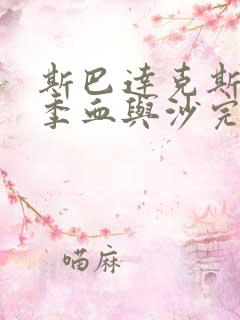 斯巴達克斯
季血與沙完
喵麻